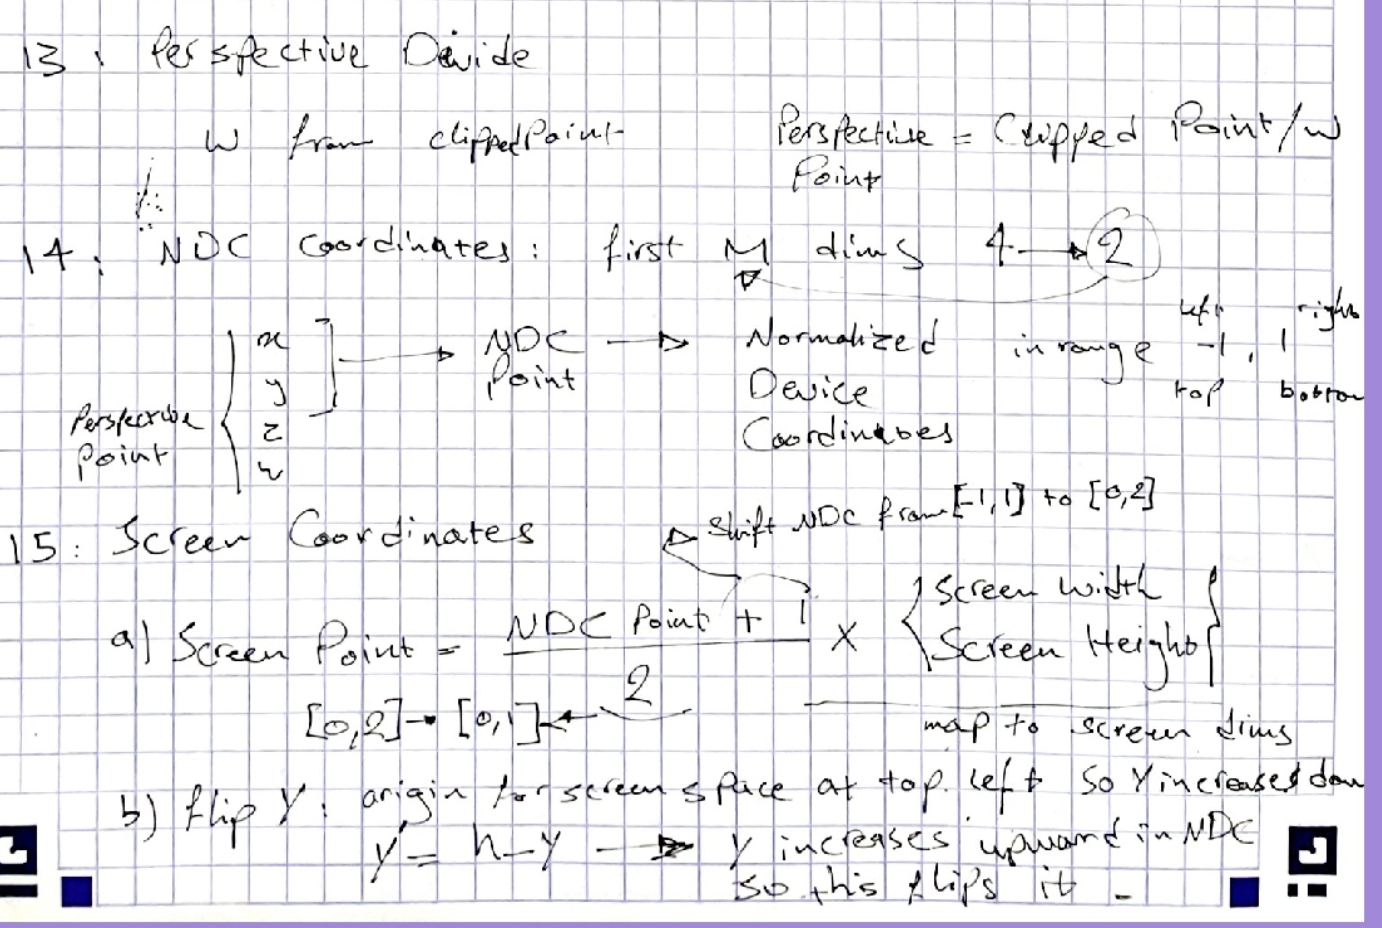 13: Perspective Devide
w from clippedPoint
Perspective = Clipped Point/w
Point
14: NDC Coordinates: first M dims 4 → 2
left right
Perspective Point { x y z w
NDC Point → Normalized Device Coordinates
in range -1, 1
top bottom
15: Screen Coordinates
Shift NDC from [-1,1] to [0,2]
a) Screen Point = NDC Point + 1 / 2 x { Screen Width Screen Height }
[0,2] → [0,1] ←
map to screen dims
b) flip Y: origin for screen space at top left so Y increases down
y' = h - y → y increases upward in NDC
so this flips it -